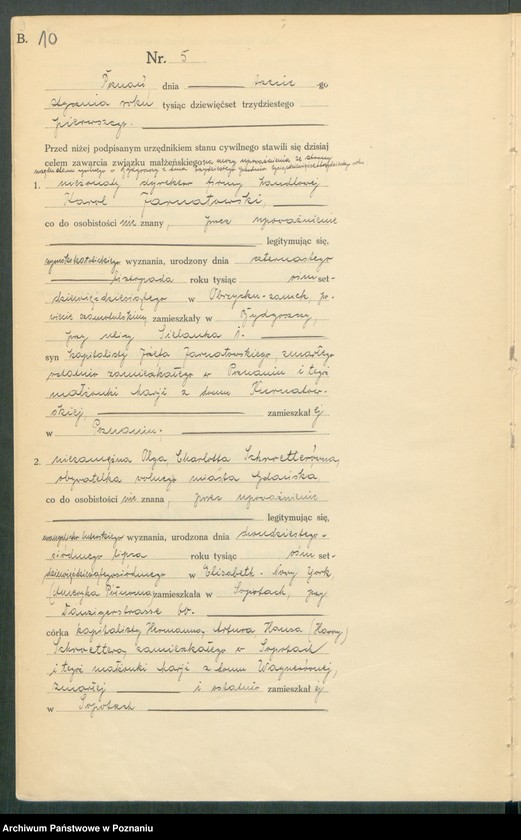 B. 10
Nr. 5
Poznań, dnia trzeciego
stycznia roku tysiąc dziewięćset trzydziestego
pierwszego.
Przed niżej podpisanym urzędnikiem stanu cywilnego stawili się dzisiaj
celem zawarcia związku małżeńskiego na mocy upoważnienia ze strony
urzędu stanu cywilnego w Bydgoszczy z dnia
1. nieżonaty dyrektor firmy handlowej
Karol Jarnatowski,
co do osobistości nie znany, przez upoważnienie
legitymując się,
rzymskokatolickiego wyznania, urodzony dnia czternastego
listopada roku tysiąc ośmset-
dziewięćdziesiątego w Obrzycku-zamek, po-
wiecie szamotulskim zamieszkały w Bydgoszczy,
przy ulicy Sielanka
syn kapitalisty Józefa Jarnatowskiego, zmarłego
ostatnio zamieszkałego w Poznaniu i tegoż
małżonki Marji z domu Kurnatow-
skiej, zamieszkałej
w Poznaniu.
2. niezamężna Olga, Charlotta Schroetterówna,
obywatelka wolnego miasta Gdańska
co do osobistości nie znana, przez upoważnienie
legitymując się,
wyznania, urodzona dnia dwudziestego-
siódmego lipca roku tysiąc ośmset-
dziewięćdziesiątegosiódmego w Elisabeth - Nowy York
(Ameryka Północna) zamieszkała w Sopotach, przy
Danzigerstrasse
córka kapitalisty, Hermanna, Artura Hansa (Harry)
Schroettera, zamieszkałego w Sopotach
i tegoż małżonki Marji z domu Wagnerównej,
zmarłej i ostatnio zamieszkałej
w Sopotach
Archiwum Państwowe w Poznaniu